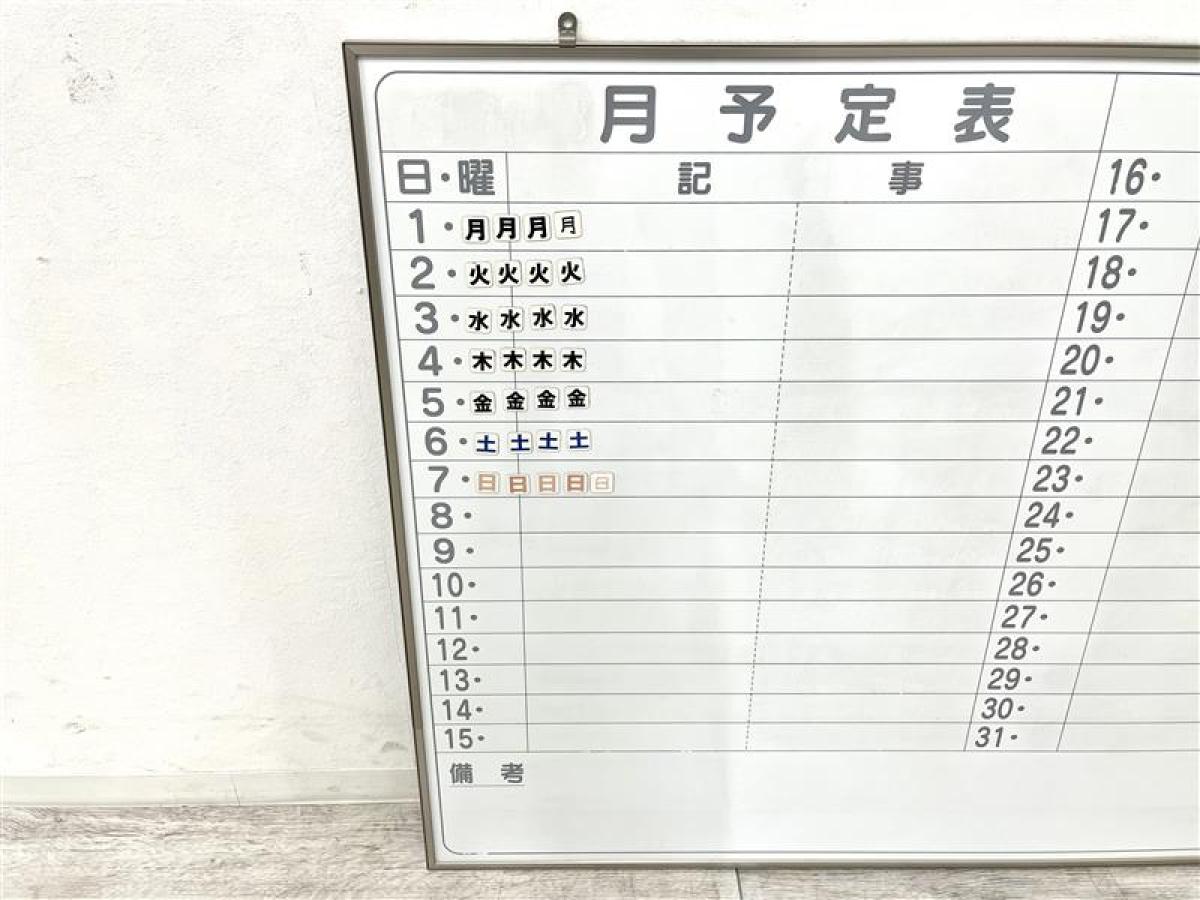 月予定表
日・曜 記事
1・月月月月
2・火火火火
3・水水水水
4・木木木木
5・金金金金
6・土土土土
7・日日日日日
8・
9・
10・
11・
12・
13・
14・
15・
備考
16・
17・
18・
19・
20・
21・
22・
23・
24・
25・
26・
27・
28・
29・
30・
31・